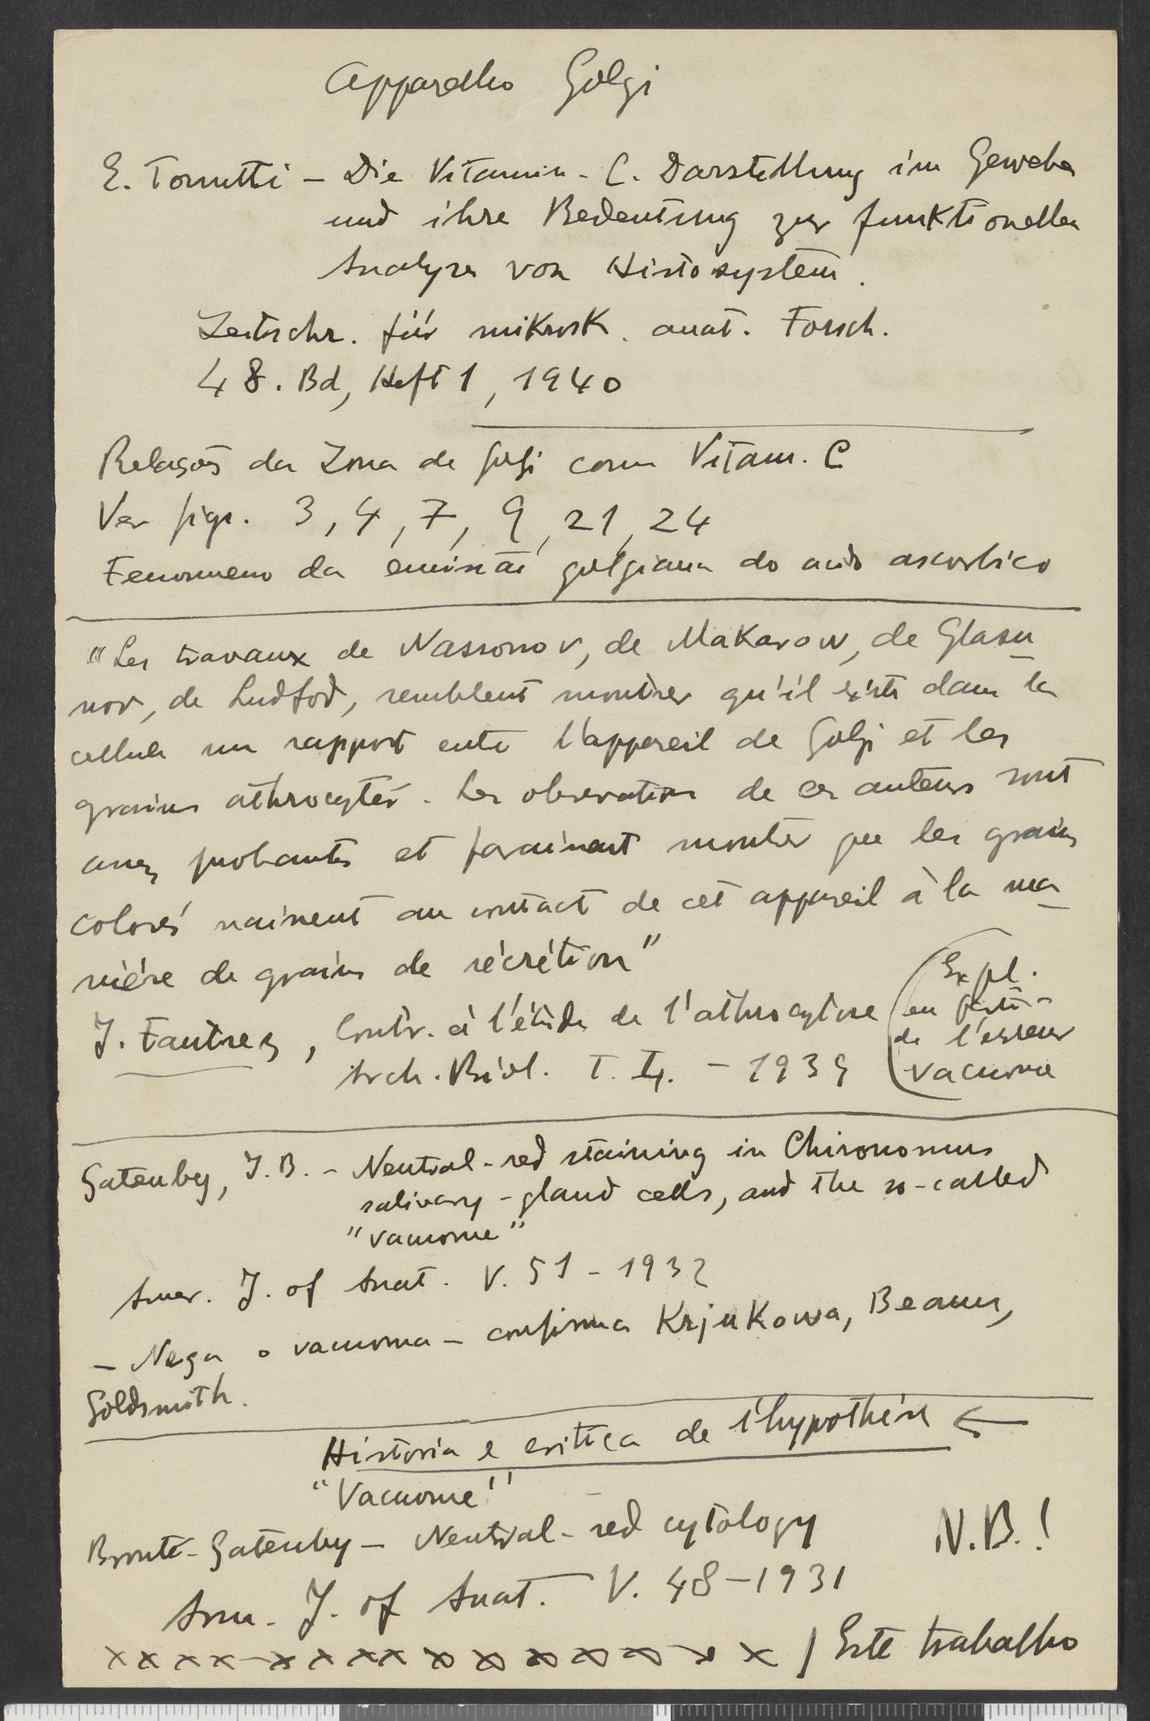 Apparelho Golgi
E. Tonutti – Die Vitamin-C. Darstellung im Gewebe
und ihre Bedeutung zur funktionellen
Analyse von Histosystem.
Zeitschr. für mikrosk. anat. Forsch.
48. Bd, Heft 1, 1940
Relações da Zona de Golgi com Vitam. C
Ver figs. 3, 4, 7, 9, 21, 24
Fenomeno da emissão golgiana do acido ascorbico
"Les travaux de Nassonov, de Makarow, de Glasu
nov, de Ludfod, semblent montrer qu'il existe dans la
cellule un rapport entre l'appareil de Golgi et les
grains athrocytés. Les observations de ces auteurs sont
assez probantes et paraissent montrer que les grains
colorés naissent au contact de cet appareil à la ma
nière de grains de sécrétion"
J. Fautrez, Contr. à l'étude de l'athrocytose
Arch. Biol. T. – 1939
(Expl.
en
de l'erreur
vacuome
Gatenby, J.B. – Neutral-red staining in Chironomus
salivary-gland cells, and the so-called
"vacuome"
Amer. J. of Anat. V. 51 – 1932
– Nega o vacuoma – confirma Krjukowa, Beams,
Goldsmith.
Historia e critica de l'hypothèse ←
"Vacuome"
Bronte-Gatenby – Neutral-red cytology
N.B.!
Am. J. of Anat. V. 48–1931
x x x x x x x x x x x x x x x / Este trabalho